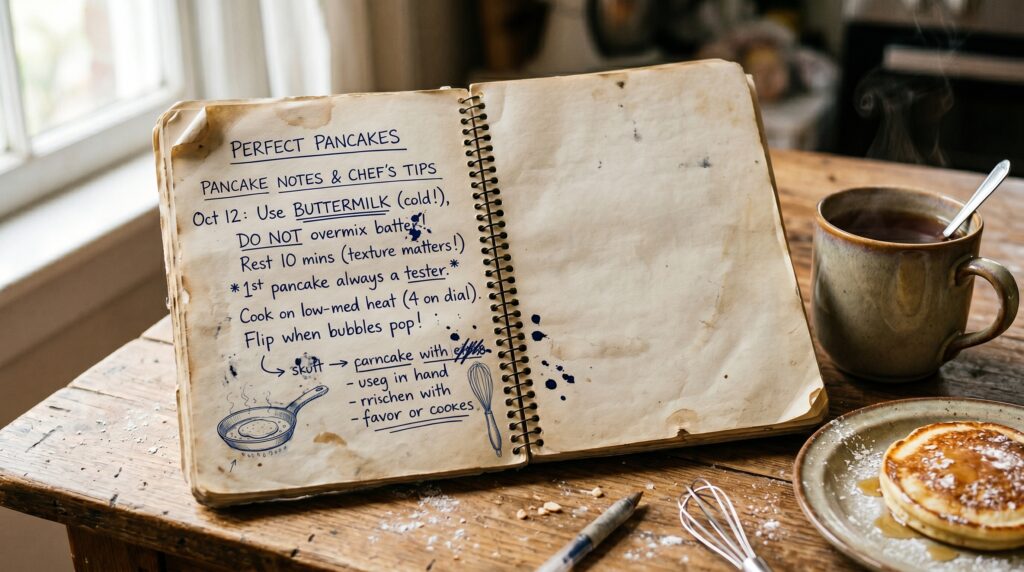 PERFECT PANCAKES
PANCAKE NOTES & CHEF'S TIPS
Oct 12: Use BUTTERMILK (cold!),
DO NOT overmix batter!
Rest 10 mins (texture matters!)
*1st pancake always a tester.*
Cook on low-med heat (4 on dial).
Flip when bubbles pop!
→ → parncake with
- useg in hand
- rrischen with
- favor or cookes